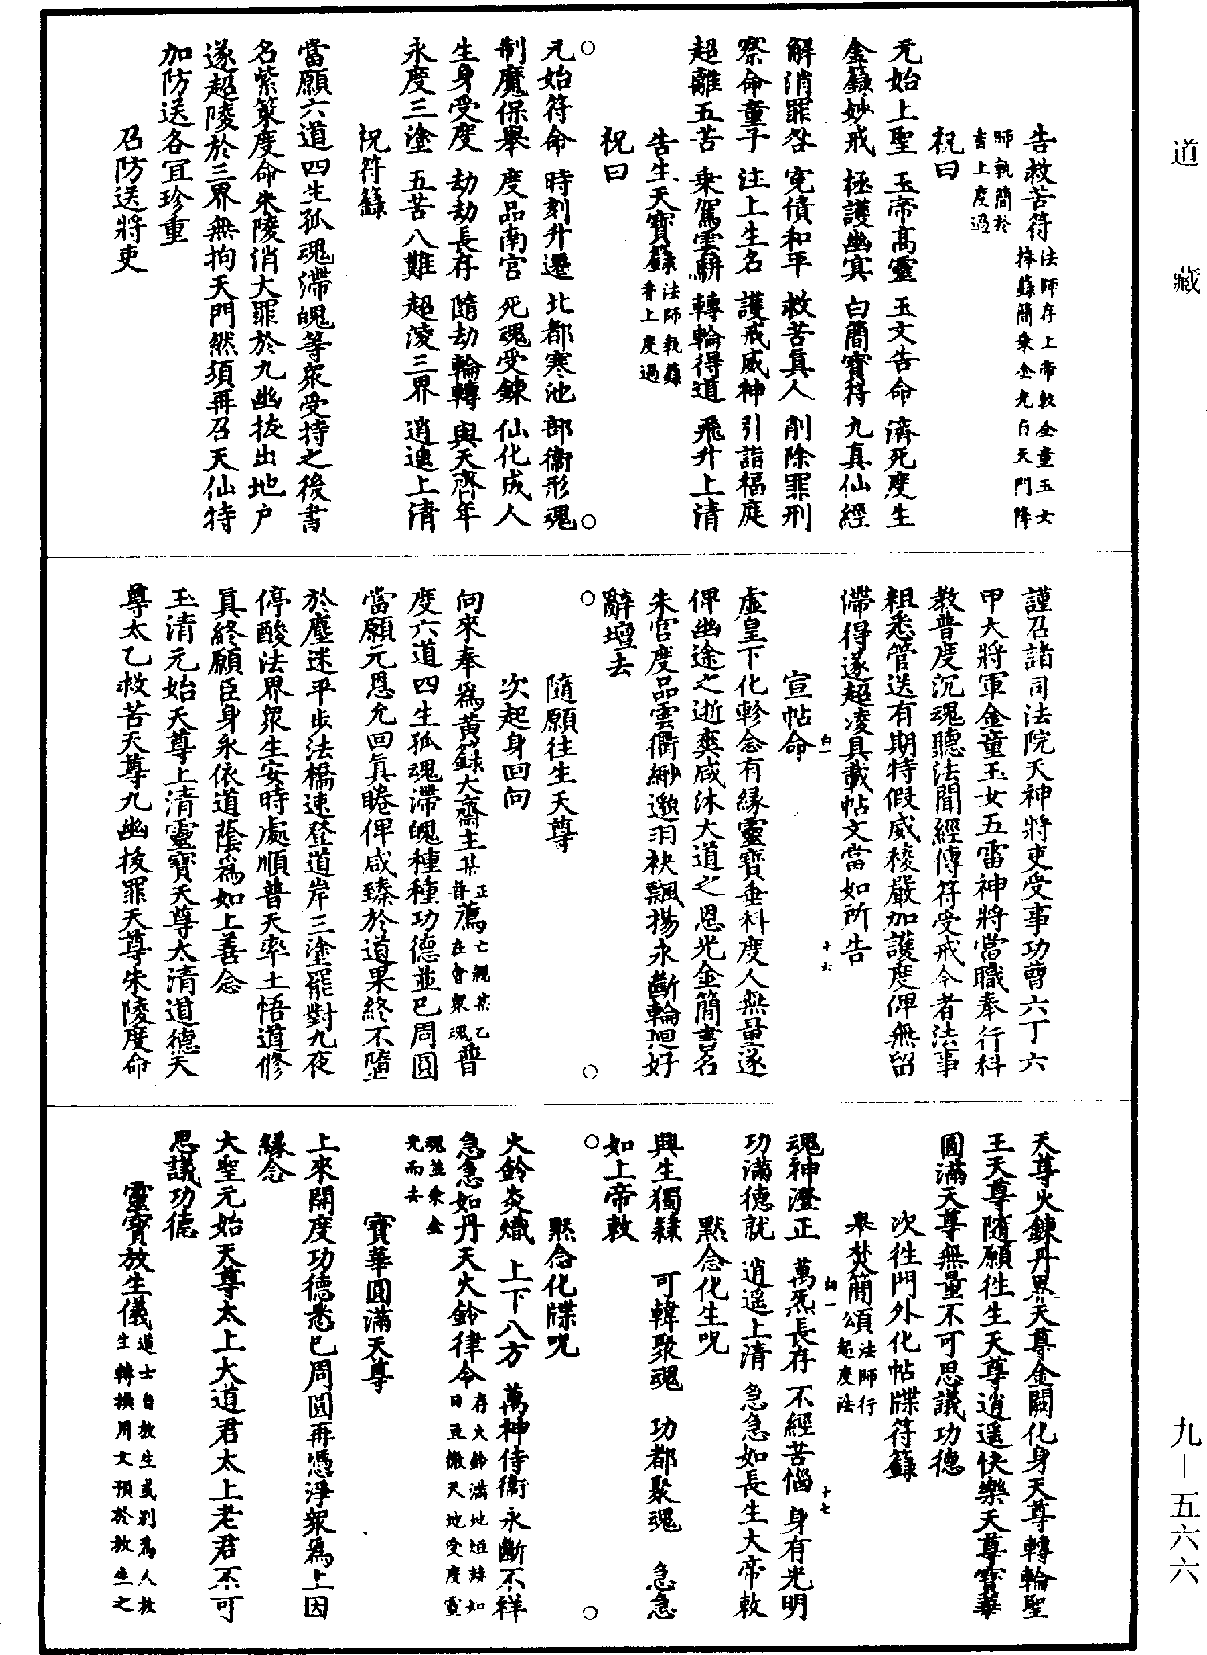 道藏
告救苦符法師存上帝敕金童玉女捧籙簡乘金光自天門降
師執簡於香上度過
祝曰
元始上聖 玉帝高靈 玉文告命 濟死度生
金籙妙戒 極護幽冥 白簡寶符 九真仙經
解消罪咎 寃債和平 救苦真人 削除罪刑
察命童子 注上生名 護戒威神 引詣福庭
超離五苦 乘駕雲軿 轉輪得道 飛升上清
告生天寶籙法師執籙香上度過
祝曰
元始符命 時刻升遷 北都寒池 部衞形魂
制魔保舉 度品南宫 死魂受鍊 仙化成人
生身受度 劫劫長存 隨劫輪轉 與天齊年
永度三塗 五苦八難 超淩三界 逍遙上清
祝符籙
當願六道四生孤魂滯魄等衆受持之後書
名紫策度命朱陵消大罪於九幽拔出地户
遂超陵於三界無拘天門然須再召天仙特
加防送各宜珍重
召防送將吏
謹召諸司法院天神將吏受事功曹六丁六
甲大將軍金童玉女五雷神將當職奉行科
教普度沉魂聽法聞經傳符受戒今者法事
粗悉管送有期特假威稜嚴加護度俾無留
滯得遂超凌具載帖文當如所告
宣帖命
虛皇下化軫念有緣靈寶垂科度人無量遂
俾幽途之逝爽咸沐大道之恩光金簡書名
朱宫度品雲衢緲邈羽袂飄揚永斷輪迴好
辭壇去
隨願往生天尊
次起身回向
向來奉爲黄籙大齋主某正薦亡親某乙普在會衆魂普
度六道四生孤魂滯魄種種功德並已周圓
當願元恩允回眞睠俾咸臻於道果終不墮
於塵迷平步法橋速登道岸三塗罷對九夜
停酸法界衆生安時處順普天率土悟道修
真終願臣身永依道蔭爲如上善念
玉清元始天尊上清靈寶天尊太清道德天
尊太乙救苦天尊九幽拔罪天尊朱陵度命
天尊火鍊丹界天尊金闕化身天尊轉輪聖
王天尊隨願往生天尊逍遥快樂天尊寶華
圓滿天尊無量不可思議功德
次往門外化帖牒符籙
舉焚簡頌法師行起度法
魂神澄正 萬炁長存 不經苦惱 身有光明
功滿德就 逍遥上清 急急如長生大帝敕
默念化生呪
與生獨籙 可韓聚魂 功都聚魂 急急
如上帝敕
默念化牒呪
火鈴炎熾 上下八方 萬神侍衞 永斷不祥
急急如丹天火鈴律令存火鈴滿地如日並徹天地受度
魂並乘金光而去
寶華圓滿天尊
上來開度功德悉已周圓再憑淨衆爲上因
緣念
大聖元始天尊太上大道君太上老君不可
思議功德
靈寶放生儀道士自放生或別爲人放生轉換用文預於放生之
九—五六六